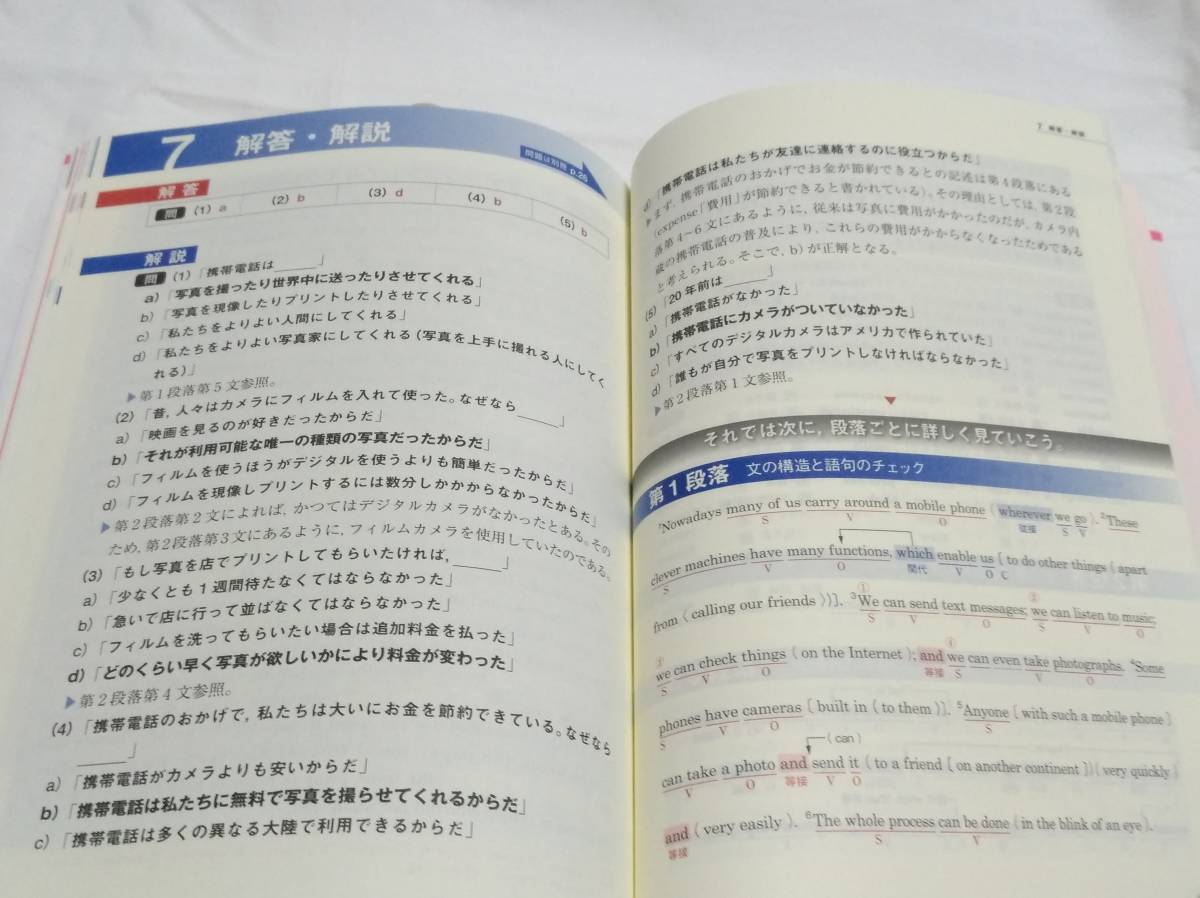 7 解答・解説
問題は別冊 p.26
解答
問 (1) a (2) b (3) d (4) b (5) b
解説
問 (1)「携帯電話は______」
a)「写真を撮ったり世界中に送ったりさせてくれる」
b)「写真を現像したりプリントしたりさせてくれる」
c)「私たちをよりよい人間にしてくれる」
d)「私たちをよりよい写真家にしてくれる(写真を上手に撮れる人にしてく
れる)」
▶第1段落第5文参照。
(2)「昔,人々はカメラにフィルムを入れて使った。なぜなら______」
a)「映画を見るのが好きだったからだ」
b)「それが利用可能な唯一の種類の写真だったからだ」
c)「フィルムを使うほうがデジタルを使うよりも簡単だったからだ」
d)「フィルムを現像しプリントするには数分しかかからなかったからだ」
▶第2段落第2文によれば,かつてはデジタルカメラがなかったとある。その
ため,第2段落第3文にあるように,フィルムカメラを使用していたのである。
(3)「もし写真を店でプリントしてもらいたければ,______」
a)「少なくとも1週間待たなくてはならなかった」
b)「急いで店に行って並ばなくてはならなかった」
c)「フィルムを洗ってもらいたい場合は追加料金を払った」
d)「どのくらい早く写真が欲しいかにより料金が変わった」
▶第2段落第4文参照。
(4)「携帯電話のおかげで,私たちは大いにお金を節約できている。なぜなら
______」
a)「携帯電話がカメラよりも安いからだ」
b)「携帯電話は私たちに無料で写真を撮らせてくれるからだ」
c)「携帯電話は多くの異なる大陸で利用できるからだ」
7 解答・解説
d)「携帯電話は私たちが友達に連絡するのに役立つからだ」
▶まず,携帯電話のおかげでお金が節約できるとの記述は第4段落にある
(expense「費用」が節約できると書かれている)。その理由としては,第2段
落第4~6文にあるように,従来は写真に費用がかかったのだが,カメラ内
蔵の携帯電話の普及により,これらの費用がかからなくなったためである
と考えられる。そこで,b)が正解となる。
(5)「20年前は______」
a)「携帯電話がなかった」
b)「携帯電話にカメラがついていなかった」
c)「すべてのデジタルカメラはアメリカで作られていた」
d)「誰もが自分で写真をプリントしなければならなかった」
▶第2段落第1文参照。
▼
それでは次に,段落ごとに詳しく見ていこう。
第1段落 文の構造と語句のチェック
¹Nowadays many of us carry around a mobile phone (wherever we go). ²These
S V O 従接 S V
clever machines have many functions, which enable us [to do other things (apart
S V O 関代 V O C
from 〈calling our friends〉)]. ³We can send text messages; we can listen to music;
① S V O ② S V O
we can check things (on the Internet); and we can even take photographs. ⁴Some
③ S V O 等接 ④ S V O
phones have cameras [built in (to them)]. ⁵Anyone [with such a mobile phone]
S V O S
(can)
can take a photo and send it (to a friend [on another continent]) (very quickly)
V O 等接 V O
and (very easily). ⁶The whole process can be done (in the blink of an eye).
等接 S V